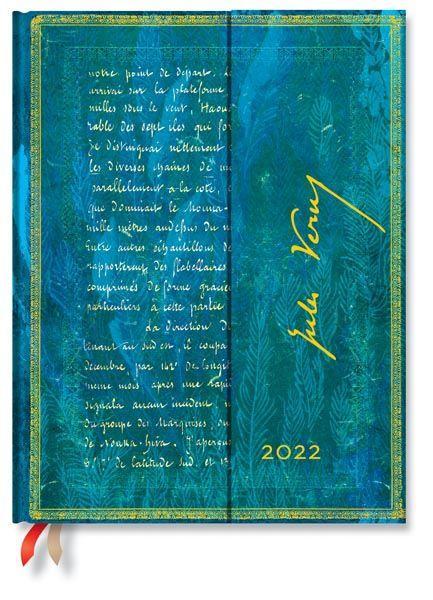 notre point de départ. Le
arrivai sur la plateforme
milles sous le vent, Haou
rable des sept iles qui for
Je distinguai nettement
les diverses chaînes de m
parallèlement à la côte, e
que dominait le
mille mètres au dessus du ni
Entre autres échantillons de
rapportèrent des flabellaires
comprimés de forme gracie
particuliers à cette partie
La direction du
tenant au sud est, il coupa
décembre, par 142° de longit
même mois, après une rapi
signala aucun incident,
du groupe des Marquises, ou
de Nouka-Hiva. J'aperçus
de latitude sud, et 13
Jules Verne
2022